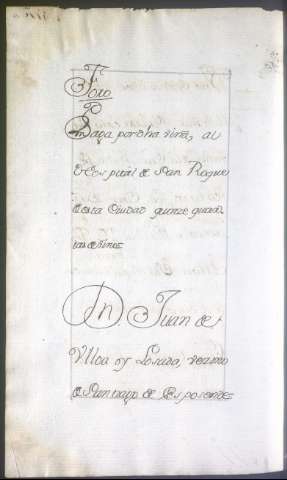 Foro
Paga por dha viña, al
Hospital de San Roque
desta Ciudad quinze quar
tas de vino
Dn. Juan de
Ulloa y Losada, vezino
de Santiago de